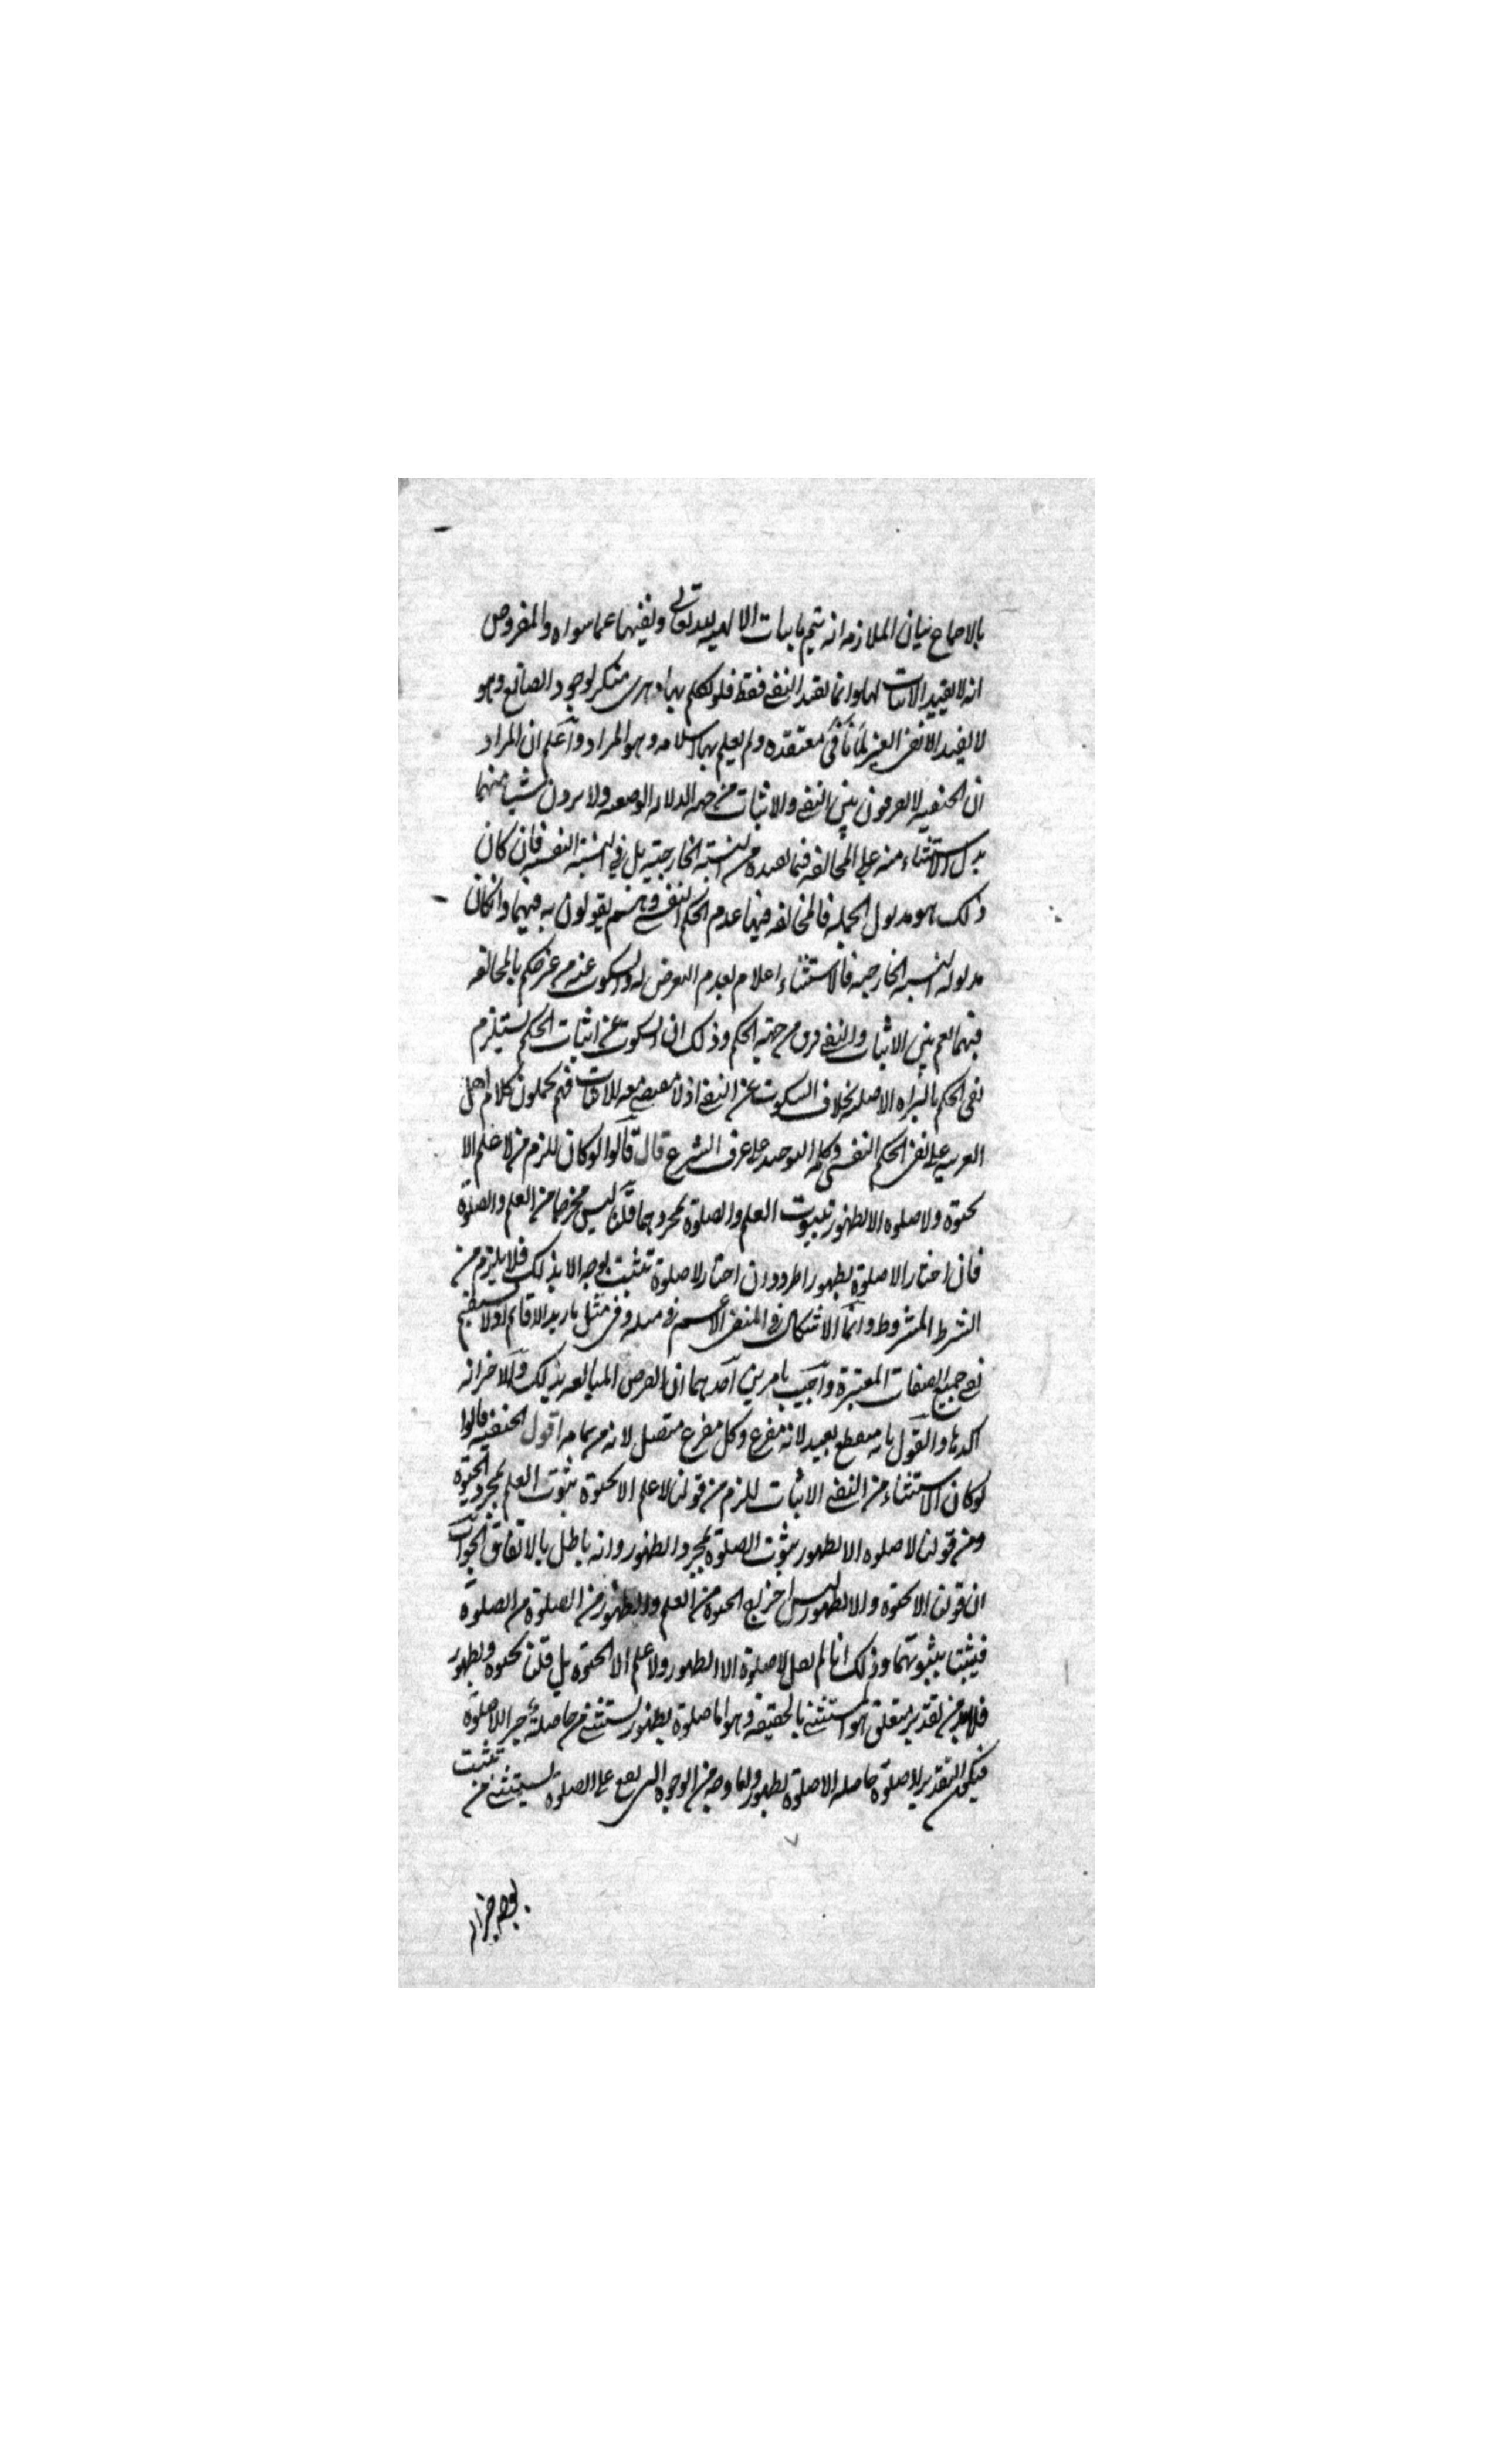 بالاجماع بيان الملازمة انه يتم باثبات الالهية لله تعالى ونفيها عما سواه والمفروض
انه لا يفيد الاثبات لها وانما يفيد النفي فقط فلو تكلم بها دهرى منكر لوجود الصانع وهو
لا يفيد الا نفى الغير لما نافى معتقده ولم يعلم بها اسلامه وهو المراد واعلم ان المراد
ان الحنفية لا يفرقون بين النفي والاثبات من جهة الدلالة الوضعية ولا يرون شيئا منهما
يدل الاستثناء منه على المخالفة فيما يفيده من النسبة الخارجية بل في النسبة النفسية فان كان
ذلك هو مدلول الجملة فالمخالفة فيهما عدم الحكم النفسي وهم يقولون به فيهما وان كان
مدلوله النسبة الخارجية فالاستثناء اعلام بعدم التعرض له والسكوت عنه من غير حكم بالمخالفة
فيهما نعم بين الاثبات والنفي فرق من جهة الحكم وذلك ان السكوت عن اثبات الحكم يستلزم
نفى الحكم بالبراءة الاصلية بخلاف السكوت عن النفي اذ لا مقتضى معه للاثبات فهم يحملون كلام اهل
العربية على نفى الحكم النفسى وكلمة التوحيد على عرف الشرع قال قالوا لو كان للزم من لا علم الا
بحيوة ولا صلوة الا بطهور ثبوت العلم والصلوة بمجردهما قلنا ليس مخرجا من العلم والصلوة
فان اختار الا صلوة بطهور اطرد وان اختار لا صلوة تثبت بوجه الا بذلك فلا يلزم من
الشرط المشروط وانما الاشكال في المنفى الاعم في مثله وفى مثل ما زيد الا قائم اذ لا يستقيم
نفى جميع الصفات المعتبرة واجيب بامرين احدهما ان الغرض المبالغة بذلك والاخر انه
آكدها والقول بانه منقطع بعيد لانه مفرغ وكل مفرغ متصل لانه من تمامه اقول الحنفية قالوا
لو كان الاستثناء من النفي الاثبات للزم من قولنا لا علم الا بحيوة ثبوت العلم بمجرد الحيوة
ومن قولنا لا صلوة الا بطهور ثبوت الصلوة بمجرد الطهور وانه باطل بالاتفاق الجواب
ان قولنا الا بحيوة والا بطهور ليس اخراج الحيوة من العلم والطهور من الصلوة من الصلوة
فيثبتا بثبوتهما وذلك انا لم نقل لا صلوة الا الطهور ولا علم الا الحيوة بل قلنا بحيوة وبطهور
فلابد من تقدير متعلق هو المستثنى بالحقيقة وهو اما صلوة بطهور يستثنى من حاصلة خبر اللا صلوة
فيكون التقدير لا صلوة حاصلة الا صلوة بطهور واما وجه من الوجوه التى يقع على الصلوة تثبت يستثنى من